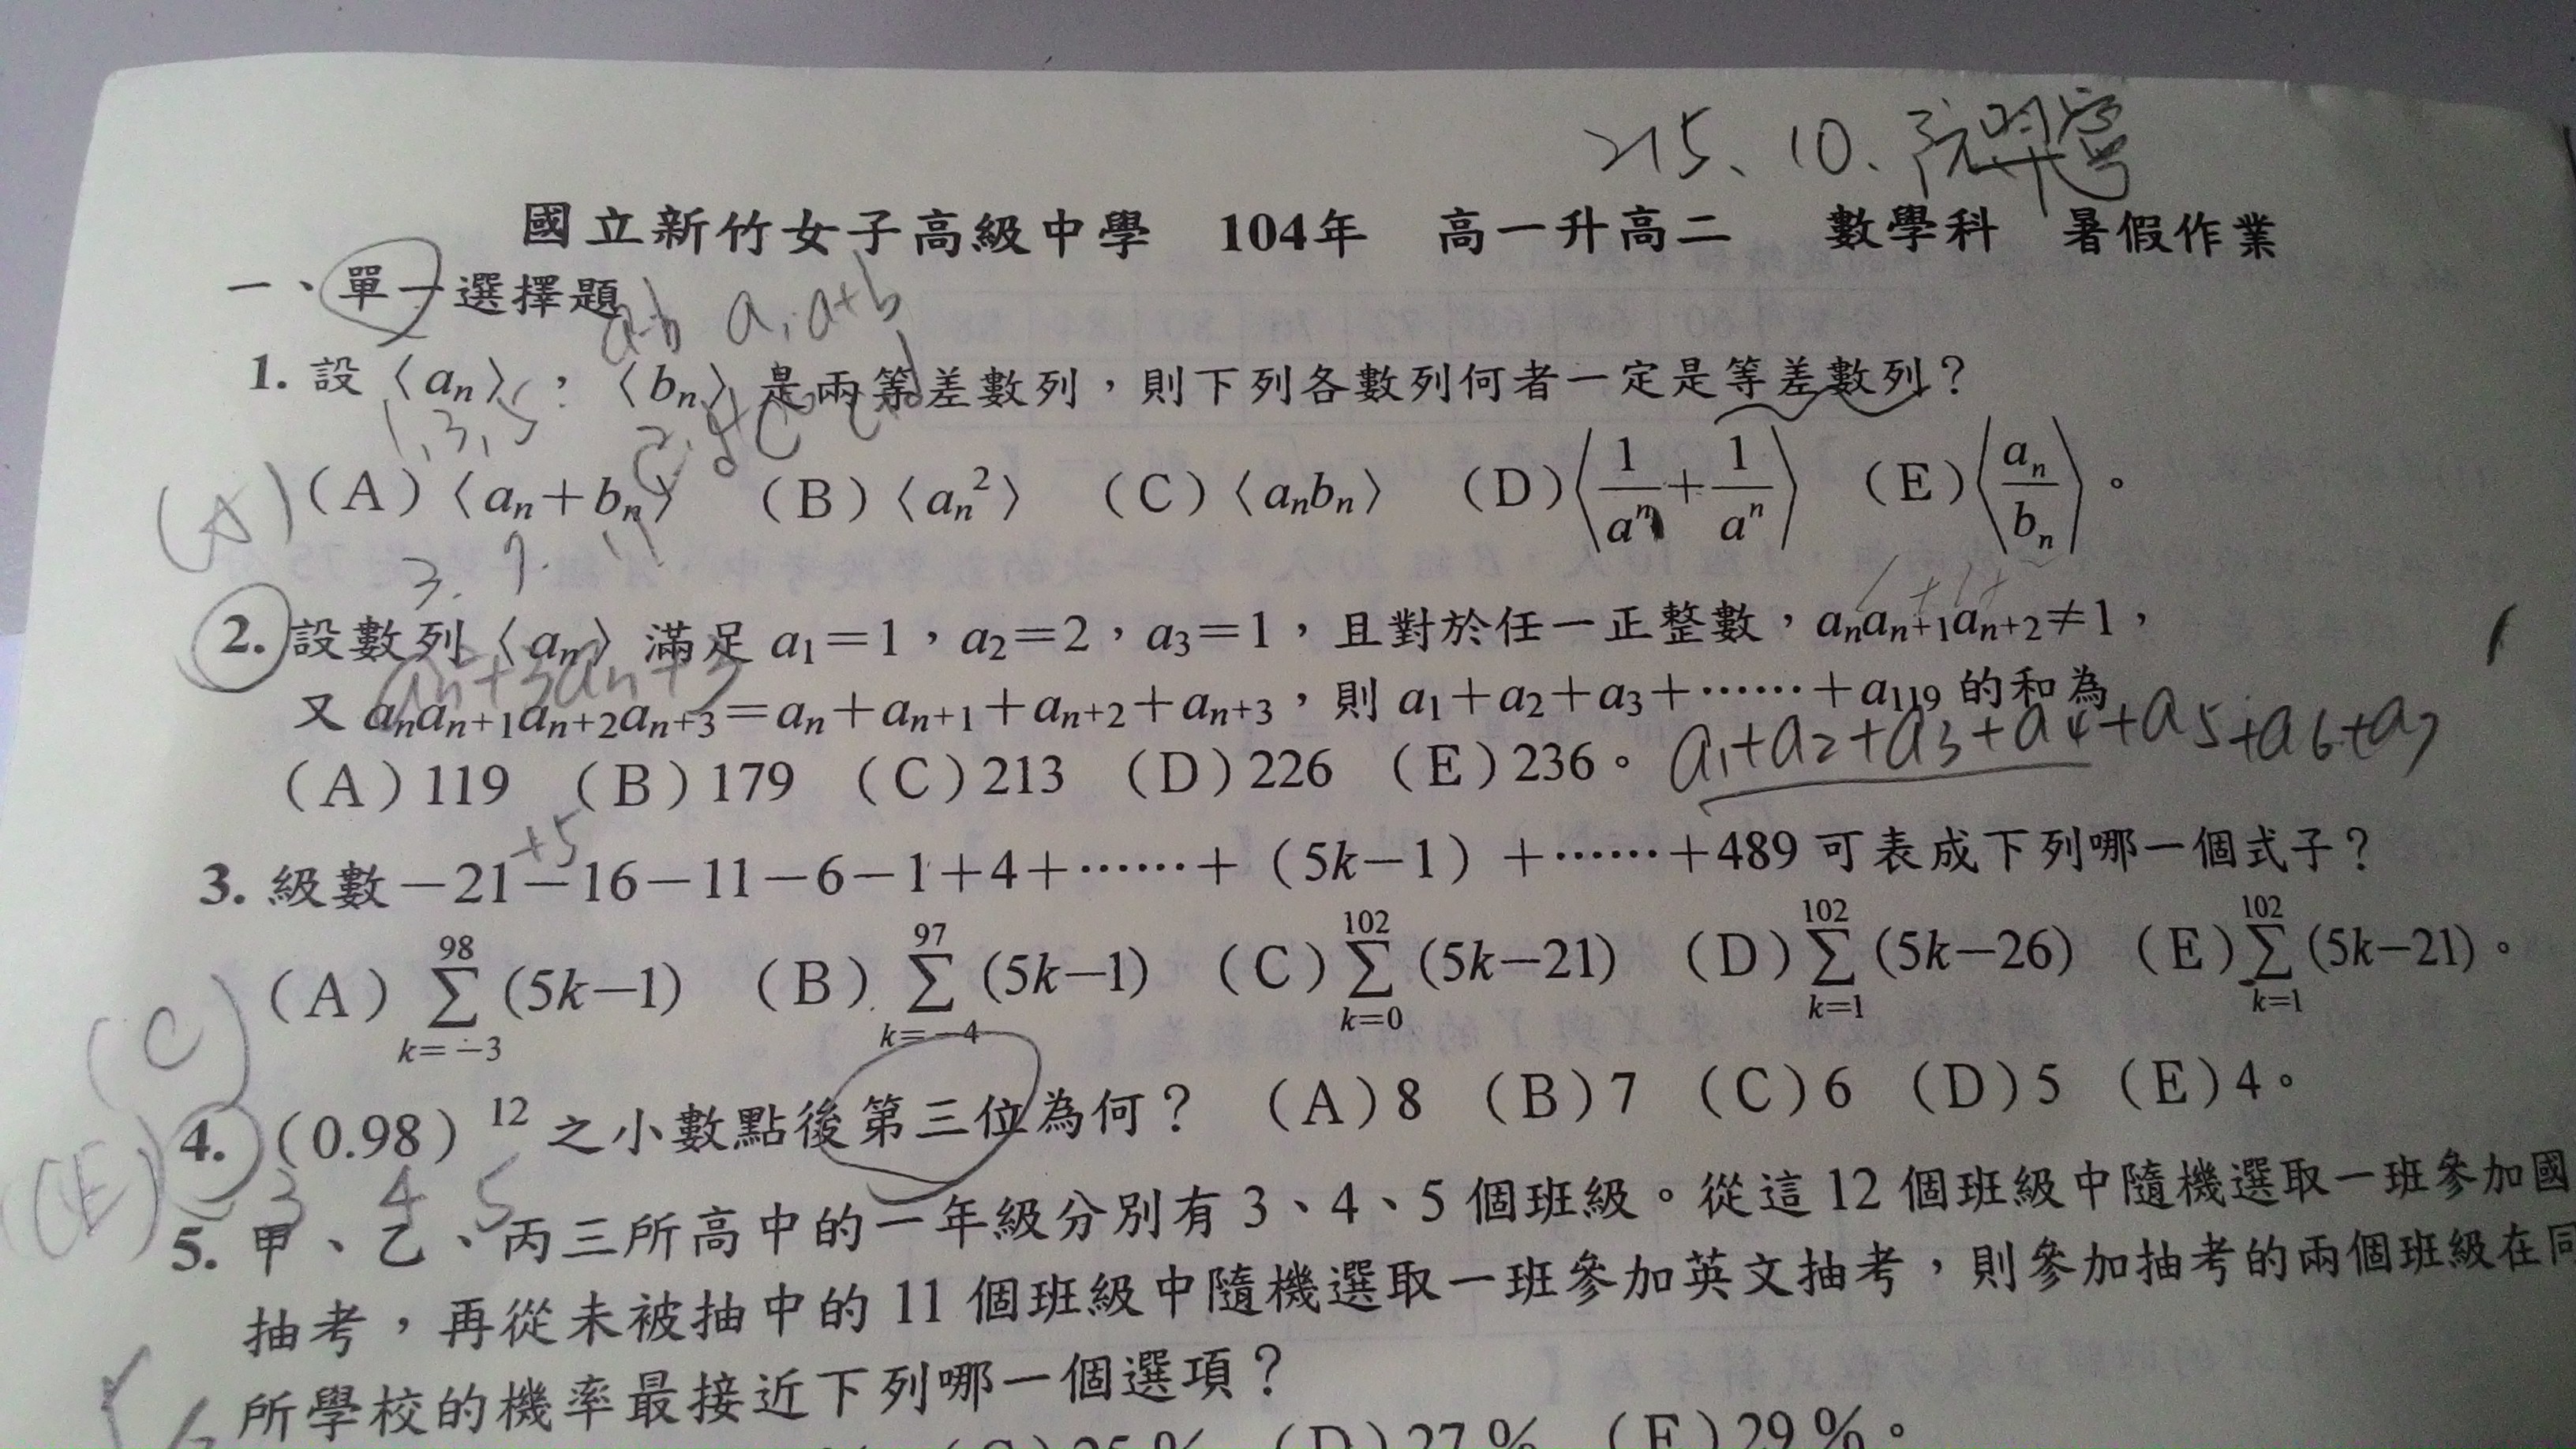 215、10、
國立新竹女子高級中學 104年 高一升高二 數學科 暑假作業
一、單一選擇題
a-b a, a+b
1. 設〈aₙ〉,〈bₙ〉是兩等差數列,則下列各數列何者一定是等差數列?
1, 3, 5
(A) (A)〈aₙ+bₙ〉 (B)〈aₙ²〉 (C)〈aₙbₙ〉 (D)〈1/aⁿ+1/aⁿ〉 (E)〈aₙ/bₙ〉。
3. 7. 11
2. 設數列〈aₙ〉滿足 a₁=1,a₂=2,a₃=1,且對於任一正整數,aₙaₙ₊₁aₙ₊₂≠1,
又 aₙaₙ₊₁aₙ₊₂aₙ₊₃=aₙ+aₙ₊₁+aₙ₊₂+aₙ₊₃,則 a₁+a₂+a₃+……+a₁₁₉ 的和為
(A)119 (B)179 (C)213 (D)226 (E)236。 a₁+a₂+a₃+a₄+a₅+a₆+a₇
+5
3. 級數-21-16-11-6-1+4+……+(5k-1)+……+489 可表成下列哪一個式子?
(C) (A) 98 Σ k=-3 (5k-1) (B) 97 Σ k=-4 (5k-1) (C) 102 Σ k=0 (5k-21) (D) 102 Σ k=1 (5k-26) (E) 102 Σ k=1 (5k-21)。
(E) 4. (0.98)¹² 之小數點後第三位為何? (A)8 (B)7 (C)6 (D)5 (E)4。
3 4 5
5. 甲、乙、丙三所高中的一年級分別有 3、4、5 個班級。從這 12 個班級中隨機選取一班參加國
抽考,再從未被抽中的 11 個班級中隨機選取一班參加英文抽考,則參加抽考的兩個班級在同
所學校的機率最接近下列哪一個選項?
(C)25% (D)27% (E)29%。